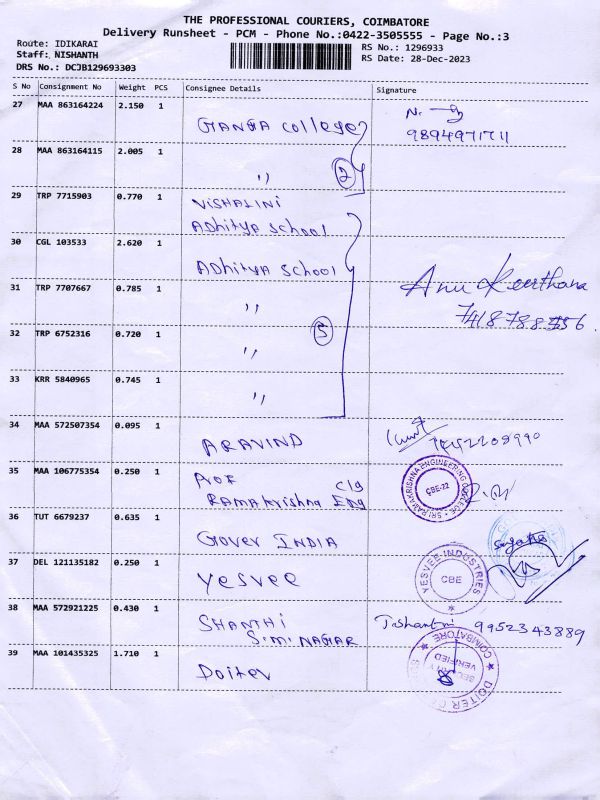 THE PROFESSIONAL COURIERS, COIMBATORE
Delivery Runsheet - PCM - Phone No.:0422-3505555 - Page No.:3
Route: IDIKARAI
Staff: NISHANTH
DRS No.: DCJB129693303
RS No.: 1296933
RS Date: 28-Dec-2023
S No Consignment No Weight PCS Consignee Details Signature
27 MAA 863164224 2.150 1 GANGA College
9894971711
28 MAA 863164115 2.005 1 ,,
2
29 TRP 7715903 0.770 1 VISHALINI
Adhitya school
30 CGL 103533 2.620 1 Adhitya school
31 TRP 7707667 0.785 1 ,,
Anu Keerthana
32 TRP 6752316 0.720 1 ,,
5
33 KRR 5840965 0.745 1 ,,
34 MAA 572507354 0.095 1 ARAVIND
35 MAA 106775354 0.250 1 Prof clg
Ramakrishna Eng
SRI RAMAKRISHNA ENGINEERING COLLEGE
CBE-22
36 TUT 6679237 0.635 1 Gover INDIA
Sujatha
37 DEL 121135182 0.250 1 Yesvee
YESVEE INDUSTRIES
CBE
38 MAA 572921225 0.430 1 SHANTHI
S.M. NAGAR
T. Shanthi 9952343889
39 MAA 101435325 1.710 1 Doitev
COIMBATORE
SECURITY
VERIFIED